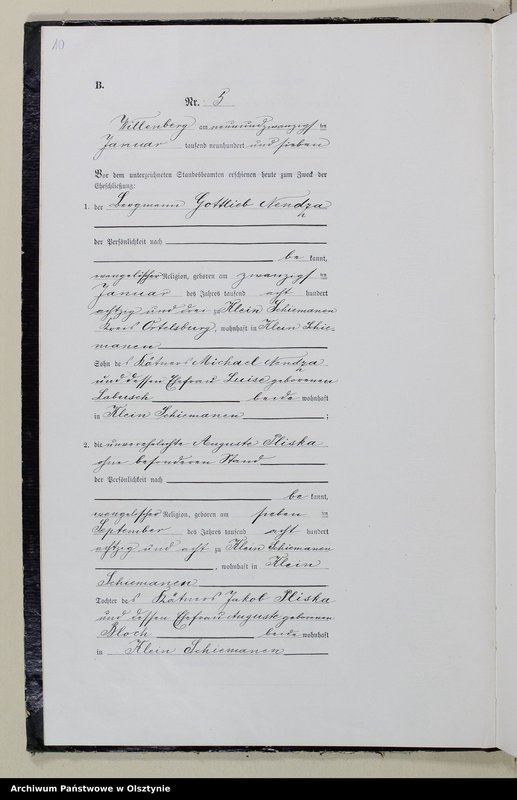 10
B.
Nr. 5
Willenberg am neunundzwanzigsten
Januar tausend neunhundert und sieben
Vor dem unterzeichneten Standesbeamten erschienen heute zum Zweck der
Eheschließung:
1. der Bergmann Gottlieb Nendza
der Persönlichkeit nach
be kannt,
evangelischer Religion, geboren am zwanzigsten
Januar des Jahres tausend acht hundert
achtzig und drei zu Klein Schiemanen
Kreis Ortelsburg, wohnhaft in Klein Schie-
manen
Sohn des Kätners Michael Nendza
und dessen Ehefrau Luise geborenen
Labusch beide wohnhaft
in Klein Schiemanen ;
2. die unverehelichte Auguste Pliska
ohne besonderen Stand
der Persönlichkeit nach
be kannt,
evangelischer Religion, geboren am sieben ten
September des Jahres tausend acht hundert
achtzig und acht zu Klein Schiemanen
, wohnhaft in Klein
Schiemanen
Tochter des Kätners Jakob Pliska
und dessen Ehefrau Auguste geborenen
Bloch beide wohnhaft
in Klein Schiemanen
Archiwum Państwowe w Olsztynie